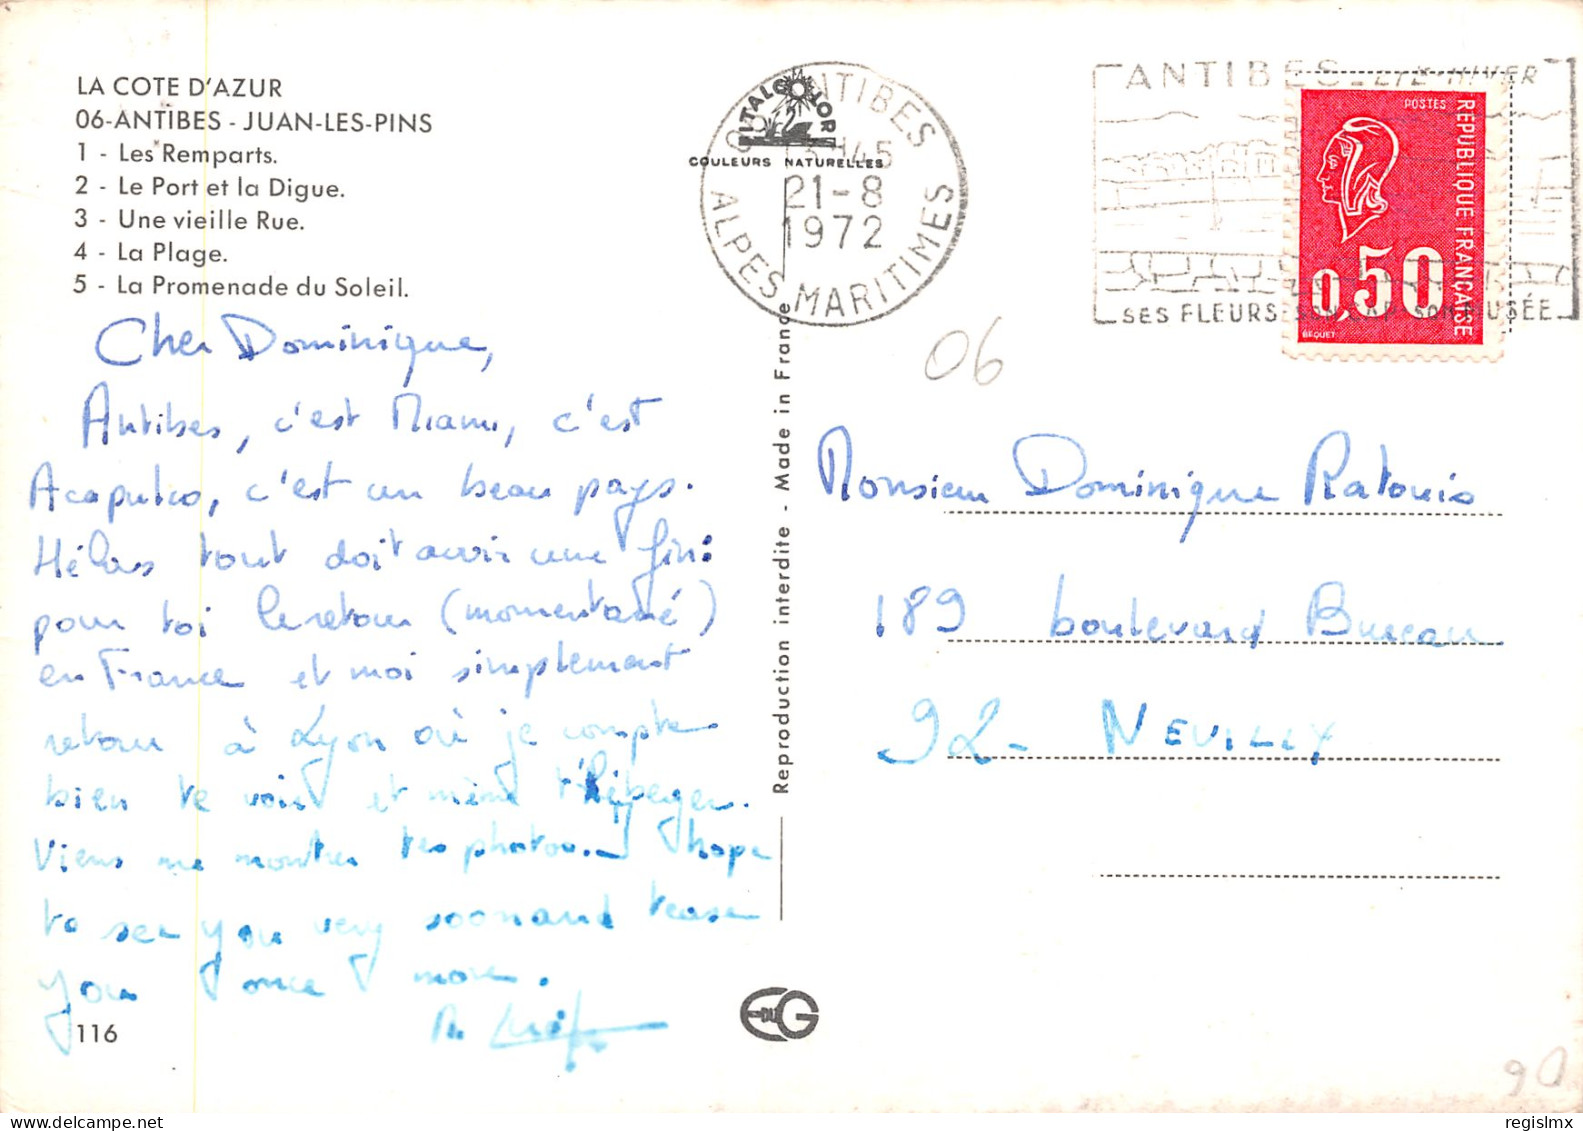 LA COTE D'AZUR
06-ANTIBES - JUAN-LES-PINS
1 - Les Remparts.
2 - Le Port et la Digue.
3 - Une vieille Rue.
4 - La Plage.
5 - La Promenade du Soleil.
Cher Dominique,
Antibes, c'est Miami, c'est
Acapulco, c'est un beau pays.
Hélas tout doit avoir une fin:
pour toi le retour (momentané)
en France et moi simplement
retour à Lyon où je compte
bien te voir et même t'héberger.
Viens me montrer tes photos. I hope
to see you very soon and tease
you once more.
116
ITALCOLOR
COULEURS NATURELLES
06 ANTIBES
13H45
21-8
1972
ALPES MARITIMES
ANTIBES - ETE-HIVER
SES FLEURS-SON CAP-SON MUSÉE
POSTES
REPUBLIQUE FRANÇAISE
0,50
BEQUET
06
Reproduction interdite - Made in France
Monsieur Dominique Ratouis
189 boulevard Bureau
92 - NEUILLY
E DU G
90
regislmx